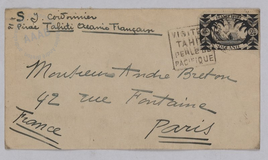 S J Cordonnier
Pirae Tahiti Oceanie Française
VISITEZ
TAHITI
PERLE DU
PACIFIQUE
Monsieur Andre Breton
42 rue Fontaine
Paris
France